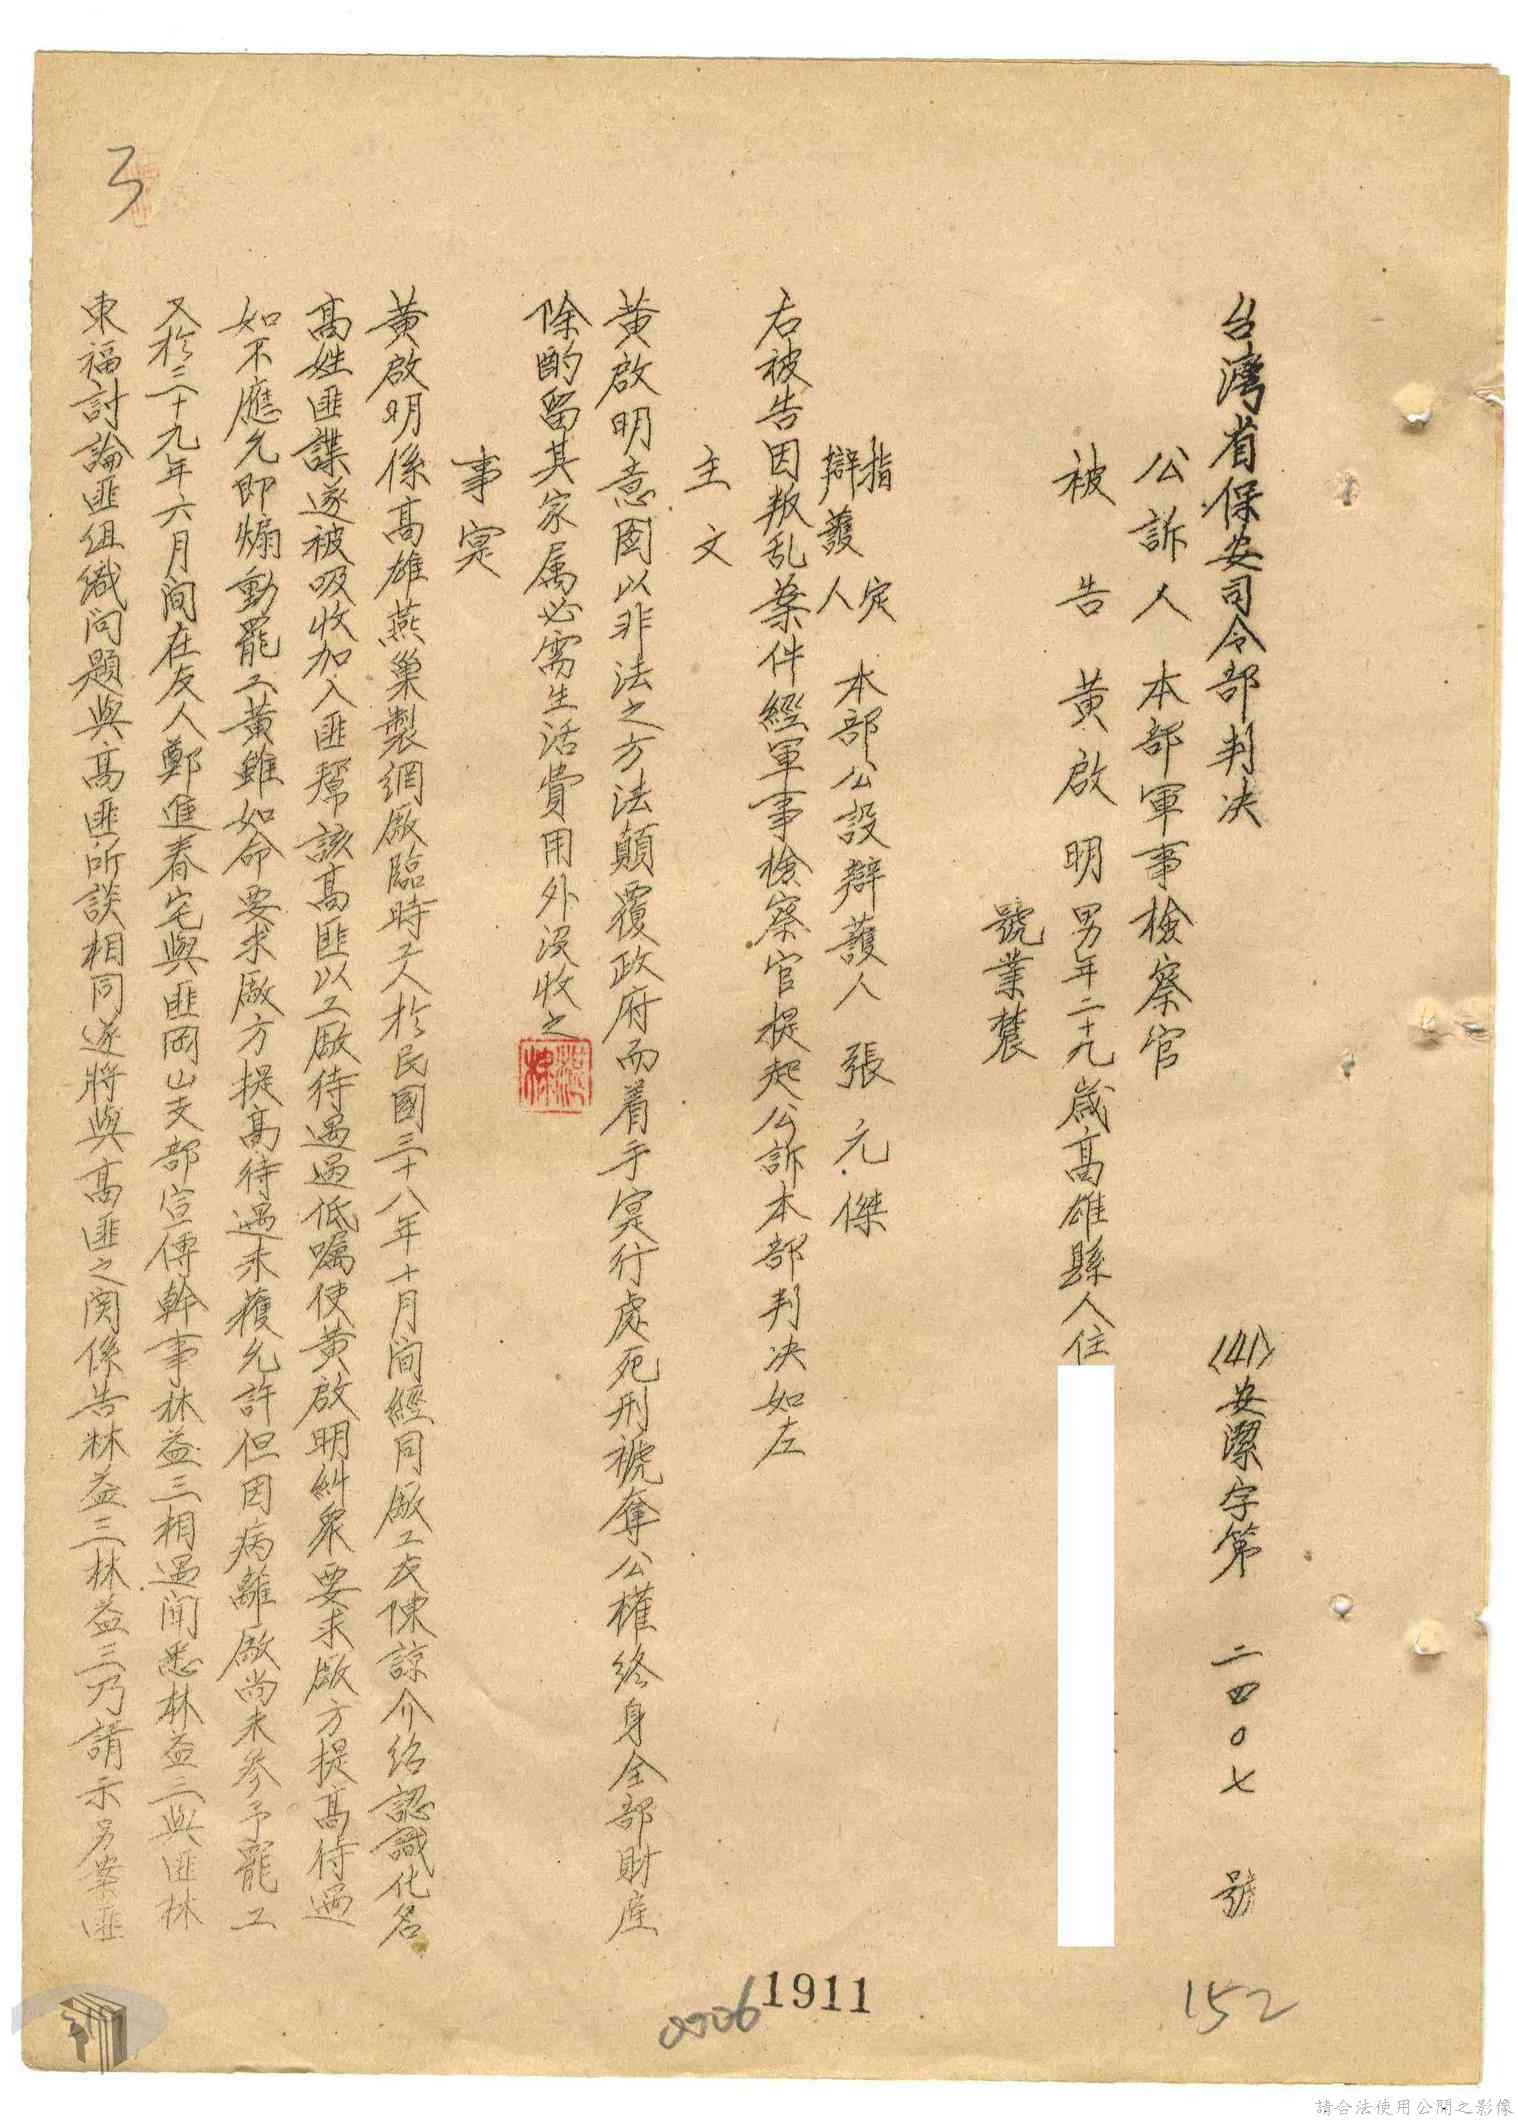 台灣省保安司令部判决
(41)安潔字第二四〇七號
公訴人 本部軍事檢察官
被告 黄啟明 男年二十九歲高雄縣人住
號業農
指定辯護人 本部公設辯護人 張元傑
右被告因叛乱案件經軍事檢察官提起公訴本部判决如左
主文
黄啟明意圖以非法之方法顛覆政府而着手实行處死刑褫奪公權終身全部財産
除酌留其家属必需生活費用外没收之
事实
黄啟明係高雄燕巢製網廠臨時工人於民國三十八年十月间經同廠工友陳諒介紹認識化名
高姓匪諜遂被吸收加入匪幫該高匪以工廠待遇過低嘱使黄啟明糾衆要求廠方提高待遇
如不應允即煽動罷工黄雖如命要求廠方提高待遇未獲允許但因病離廠尚未參予罷工
又於三十九年六月间在友人鄭進春宅與匪岡山支部宣傳幹事林益三相遇聞悉林益三與匪林
東福討論匪组織问題與高匪所談相同遂將與高匪之関係告林益三林益三乃請示另案匪
152
1911
0006
3
請合法使用公開之影像